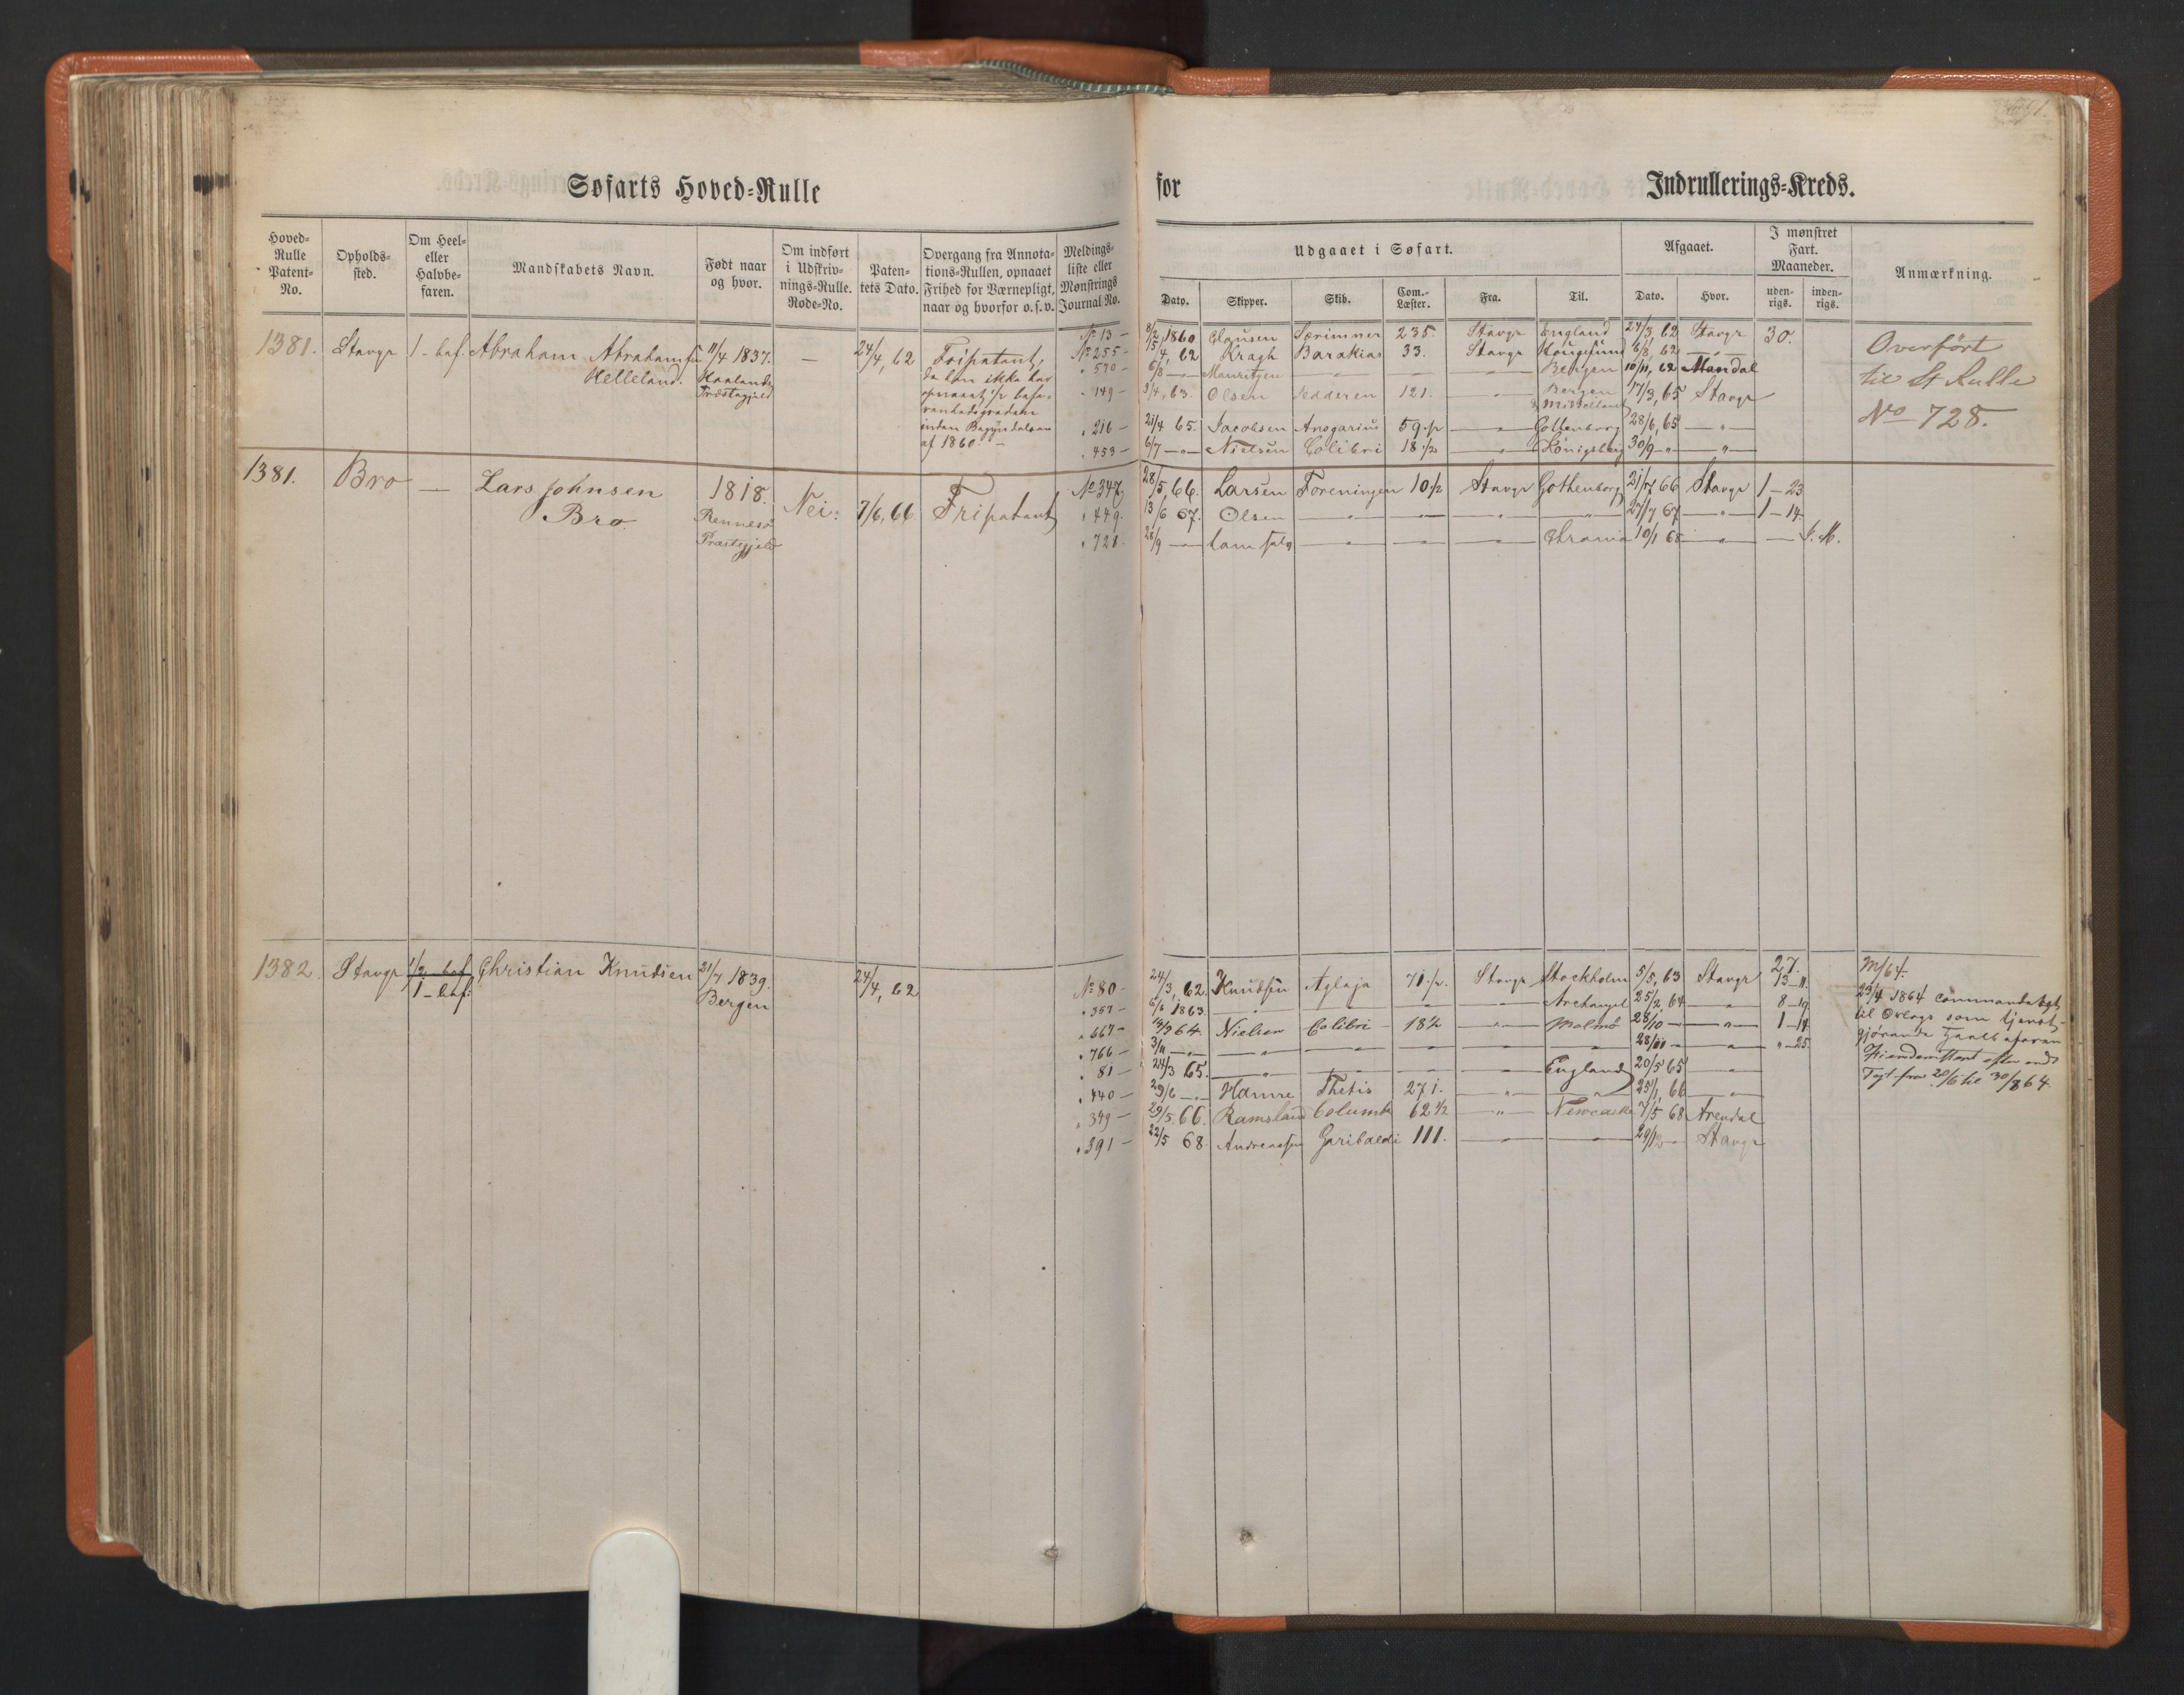 Søfarts Hoved=Rulle
for Indrullerings=Kreds.
Hoved=Rulle Patent=No.
Opholds=sted.
Om Heel= eller Halvbe=faren.
Mandskabets Navn.
Født naar og hvor.
Om indført i Udskriv=nings=Rulle. Rode=No.
Paten=tets Dato.
Overgang fra Annota=tions=Rullen, opnaaet Frihed for Værnepligt, naar og hvorfor o.s.v.
Meldings=liste eller Mønstrings Journal No.
Udgaaet i Søfart.
Dato. Skipper. Skib. Com.=Læster. Fra. Til.
Afgaaet.
Dato. Hvor.
I mønstret Fart. Maaneder.
uden=rigs. inden=rigs.
Anmærkning.
1381. Stavgr 1 - bef. Abraham Abrahamsen 11/4 1837. — 24/4, 62 Fripatent,
Helleland. Haalands Præstegjeld
da han ikke har
opnaaet 1/2 befa-
renhedsgraden
inden Begyndelsen
af 1860 —
No 13 — 8/2 1860 Clausen Særimner 235. Stavgr England 24/3, 62 Stavgr 30.
No 255 — 15/4, 62 Kragh Barakias 33. Stavgr Hougesund 6/8, 62 — " —
" 570 — 6/8 — " — Mauritzen — " — — " — — " — Bergen 10/11, 62 Mandal
" 149 — 9/4, 63. Olsen Jedderen 121. — " — Bergen 17/3, 65 Stavgr
& Middelhavet
" 216 — 21/4 65. Jacobsen Ansgarius 59 1/2 — " — Gottenborg 28/6, 65 — " —
" 453 — 6/7 — " — Nielsen Colibri 18 1/2 — " — Königsberg 30/9 — " — — " —
Overført
til St Rulle
No 728.
1381. Bro — Lars Johnsen 1818. Nei: 7/6, 66 Fripatent
Bro. Rennesø
Præstegjeld
No 347 28/5, 66. Larsen Foreningen 10 1/2 Stavgr Gothenborg 21/7 66 Stavgr 1 — 23
" 449. 13/6 67. Olsen — " — — " — — " — — " — 27/7 67 — " — 1 — 14.
" 721. 28/9 — " — — " — — " — — " — Chrania 10/1 68 — " —
1382. Stavgr 1/2 bef Christian Knudsen 21/7 1839. 24/4, 62
1 - bef: Bergen
No 80 — 24/3, 62. Knudsen Aglaja 71 1/2. Stavgr Stockholm 5/5, 63 Stavgr 27.
13 — 11.
" 357 — 6/6 1863. — " — — " — Archangel 25/2, 64 — " — 8 — 19
" 667 — 14/9 64. Nielsen Colibri — 18 1/2 — " — Malmø 28/10 — " — 1 — 14
" 766 — 3/11 — " — — " — — " — — " — 28/11 — " — " — 25.
" 81 — 24/3 65. — " — — " — England 20/5 65 — " —
" 440 — 29/6 — " — Hamre Thetis 271. — " — — " — 25/1, 66 — " —
" 349 — 29/5. 66. Ramsland Columb 62 1/2 — " — Newcastle 7/5 68 Arendal
" 391 — 22/5 68 Andreassen Garibaldi 111. — " — — " — 29/12 — Stavgr
M/64.
23/4 1864 commanderet
til Orlogs som tjenst-
gjørende
efter endt
Togt fra 20/6 til 30/8 64.